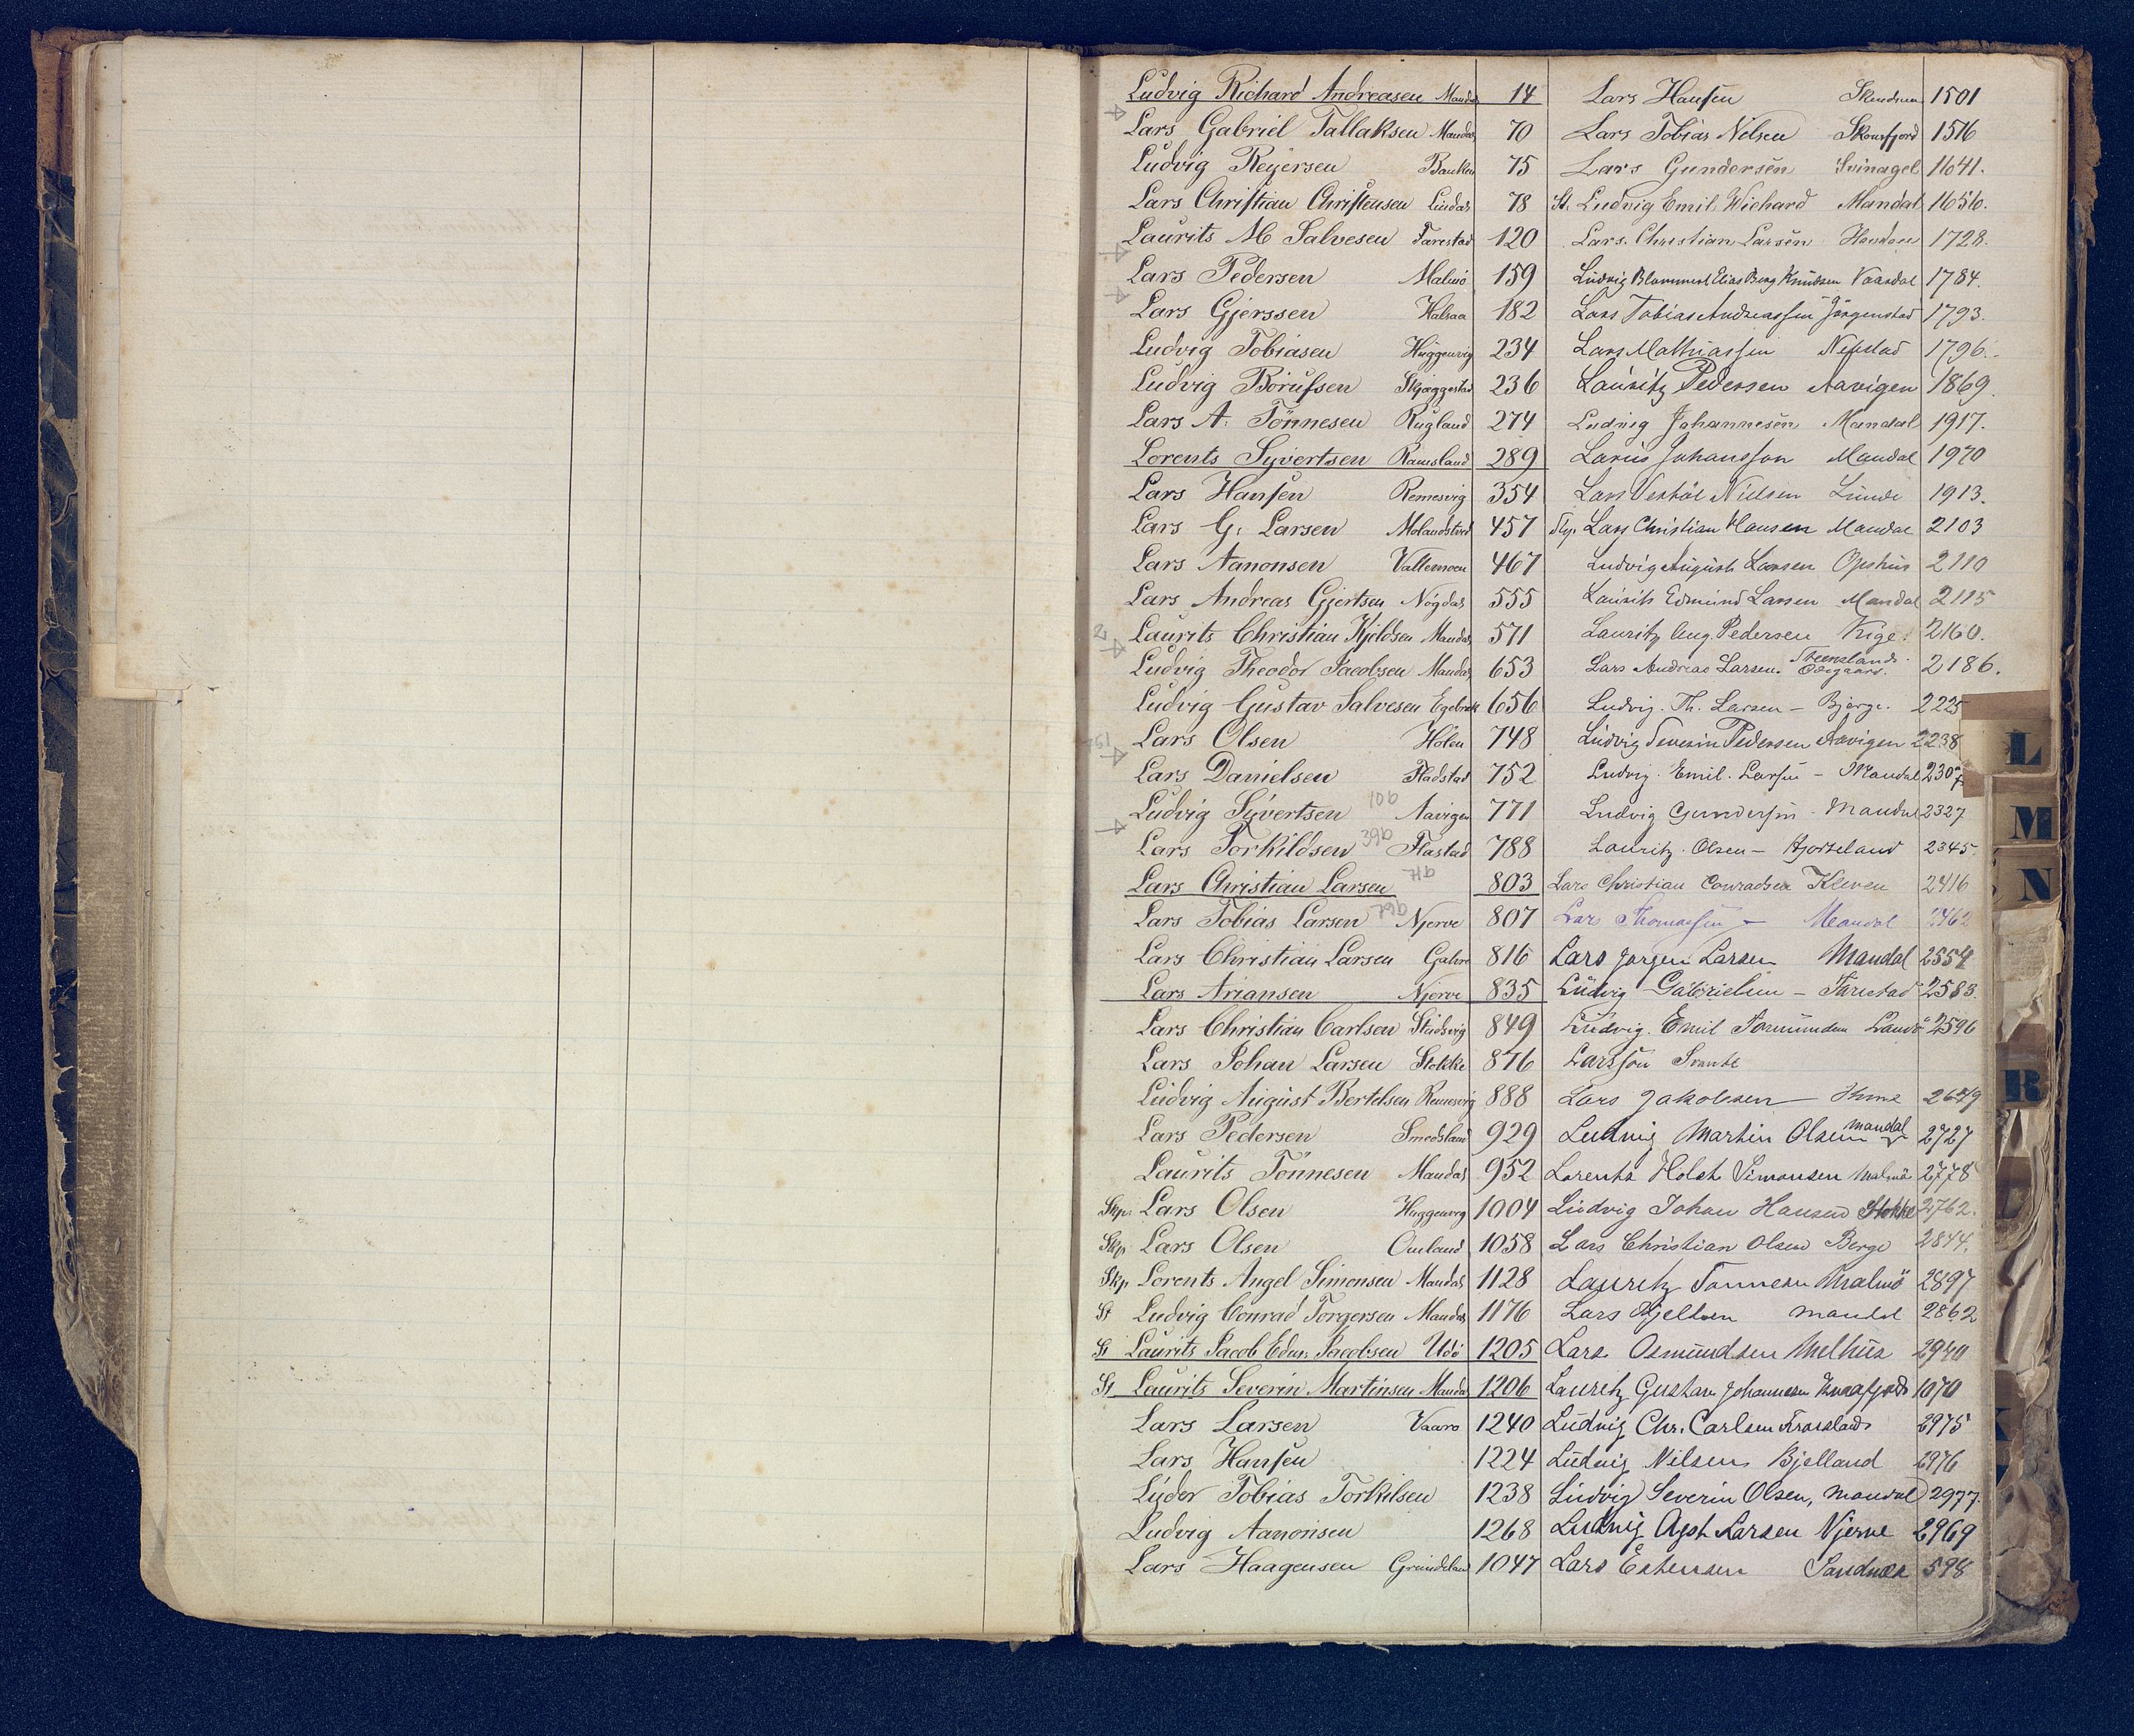 Ludvig Richard Andreasen Mandal 14
Lars Gabriel Tallaksen Mandal 70
Ludvig Reyersen Banken 75
Lars Christian Christensen Lindal 78
Laurits M Salvesen Tarestad 120
Lars Pedersen Malmö 159
Lars Gjerssen Halsaa 182
Ludvig Tobiasen Huggenvig 234
Ludvig Börufsen Skjæggestad 236
Lars A. Tönnesen Rugland 274
Lorents Syvertsen Ramsland 289
Lars Hansen Remesvig 354
Lars G. Larsen 457
Lars Aanonsen Vattemoen 467
Lars Andreas Gjertsen Nögdal 555
Laurits Christian Kjeldsen Mandal 571
Ludvig Theodor Jacobsen Mandal 653
Ludvig Gustav Salvesen 656
Lars Olsen Holen 748
Lars Danielsen Fladstad 752
Ludvig Syvertsen Aavigen 771
Lars Torkildsen Flastad 788
Lars Christian Larsen 803
Lars Tobias Larsen Njerve 807
Lars Christian Larsen 816
Lars Ariansen Njerve 835
Lars Christian Carlsen Studsvig 849
Lars Johan Larsen Stokke 876
Ludvig August Bertelsen Remesvig 888
Lars Pedersen Smedsland 929
Laurits Tönnesen Mandal 952
Skp. Lars Olsen Huggenvig 1004
Skp. Lars Olsen Omland 1058
Skp. Lorents Angel Simonsen Mandal 1128
St Ludvig Conrad Torgersen Mandal 1176
St Laurits Jacob Edm. Jacobsen Udö 1205
St Laurits Severin Martinsen Mandal 1206
Lars Larsen Vaaro 1240
Lars Hansen 1224
Lüder Tobias Torkilsen 1238
Ludvig Aanonsen 1268
Lars Haagensen Grundeland 1047
Lars Hansen 1501
Lars Tobias Nilsen 1516
Lars Gundersen Svinagel 1641.
St. Ludvig Emil Wichard Mandal 1656.
Lars Christian Larsen 1728.
Ludvig Elias Berg Knudsen 1784.
Lars Tobias Andreassen Jörgenstad 1793.
Lars Mathiassen 1796.
Lauritz Pedersen Aavigen 1869.
Ludvig Johannesen Mandal 1917.
Johansson Mandal 1970
Lars Nielsen Lunde 1913.
Lars Christian Hansen Mandal 2103
Ludvig August Larsen Opshus 2110
Laurits Edmund Larsen Mandal 2115
Lauritz Aug. Pedersen 2160.
Lars Andreas Larsen. Steensland Ödegaard. 2186.
Ludvig. Th. Larsen – Bjerge. 2225
Ludvig Severin Pedersen Aavigen 2238
Ludvig. Emil. Larsen – Mandal 2307
Ludvig Gundersen Mandal 2327
Lauritz. Olsen – 2345.
Lars Christian Conradsen Kleven 2416
Lars Thomassen – Mandal
Lars Jörgen Larsen Mandal 2554
Ludvig Gabrielsen – Tarestad 2583.
Ludvig. Emil 2596
Larsson Svante
Lars Jakobsen – Hime
Ludvig Martin Olsen Mandal 2727
Lorents Holst Simonsen Malmö 2778
Ludvig Johan Hansen Stokke 2762.
Lars Christian Olsen Berge 2844.
Lauritz Tönnesen Malmö 2897
Lars Kjeldsen Mandal 2862
Lars Osmundsen Melhus 2940
Lauritz Gustav Johannesen 1070
Ludvig Chr. Carlsen 2975
Ludvig Nilsen Bjelland 2976
Ludvig Severin Olsen, Mandal 2977.
Ludvig Agst Larsen Njerve 2969
Lars Estensen Sandnes 598
L
M
N
R